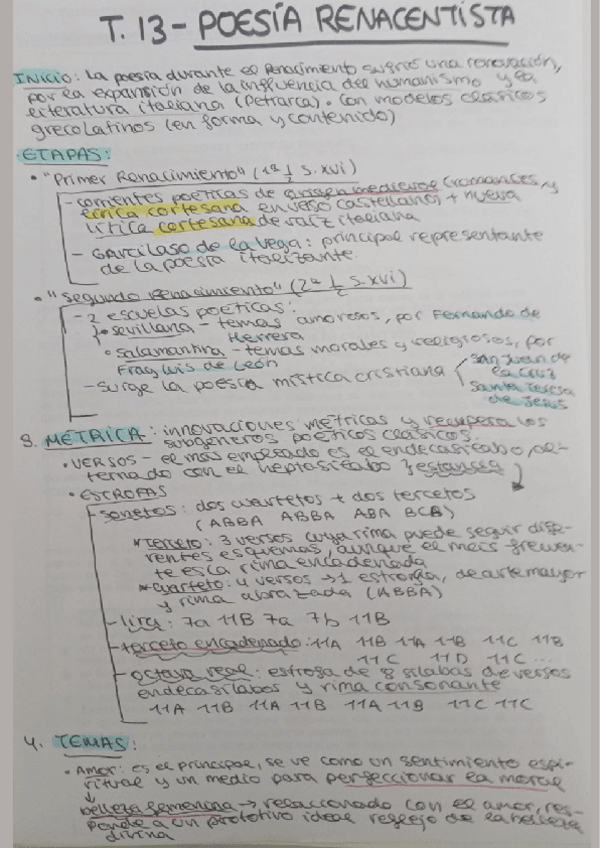 T. 13 - POESÍA RENACENTISTA
INICIO: La poesía durante el Renacimiento sufrió una renovación,
por la expansión de la influencia del humanismo y la
literatura italiana (Petrarca). Con modelos clásicos
grecolatinos (en forma y contenido)
ETAPAS:
• "Primer Renacimiento" (1ª 1/2 s. XVI)
- corrientes poéticas de origen medieval (romances, y
lírica cortesana en verso castellano) + nueva
lírica cortesana de raíz italiana
- Garcilaso de la Vega: principal representante
de la poesía italizante.
• "Segundo Renacimiento" (2ª 1/2 s. XVI)
- 2 escuelas poéticas:
• sevillana - temas amorosos, por Fernando de
Herrera
• salamantina - temas morales y religiosos, por
Fray Luis de León
- Surge la poesía mística cristiana < San Juan de
la Cruz
Santa Teresa
de Jesús
3. MÉTRICA: innovaciones métricas y recupera los
subgéneros poéticos clásicos.
• VERSOS - el más empleado es el endecasílabo, al-
ternado con el heptasílabo } estancia
• ESTROFAS
- sonetos: dos cuartetos + dos tercetos
(ABBA ABBA ABA BCB)
* Terceto: 3 versos cuya rima puede seguir dife-
rentes esquemas, aunque el más frecuen-
te es la rima encadenada
* cuarteto: 4 versos → 1 estrofa, de arte mayor
y rima abrazada (ABBA)
- lira: 7a 11B 7a 7b 11B
- terceto encadenado: 11A 11B 11A 11B 11C 11B
11C 11D 11C ...
- octava real: estrofa de 8 sílabas de versos
endecasílabos y rima consonante
11A 11B 11A 11B 11A 11B 11C 11C
4. TEMAS:
• Amor: es el principal, se ve como un sentimiento espi-
ritual y un medio para perfeccionar la moral
↓
belleza femenina → relacionado con el amor, res-
ponde a un prototipo ideal reflejo de la belleza
divina